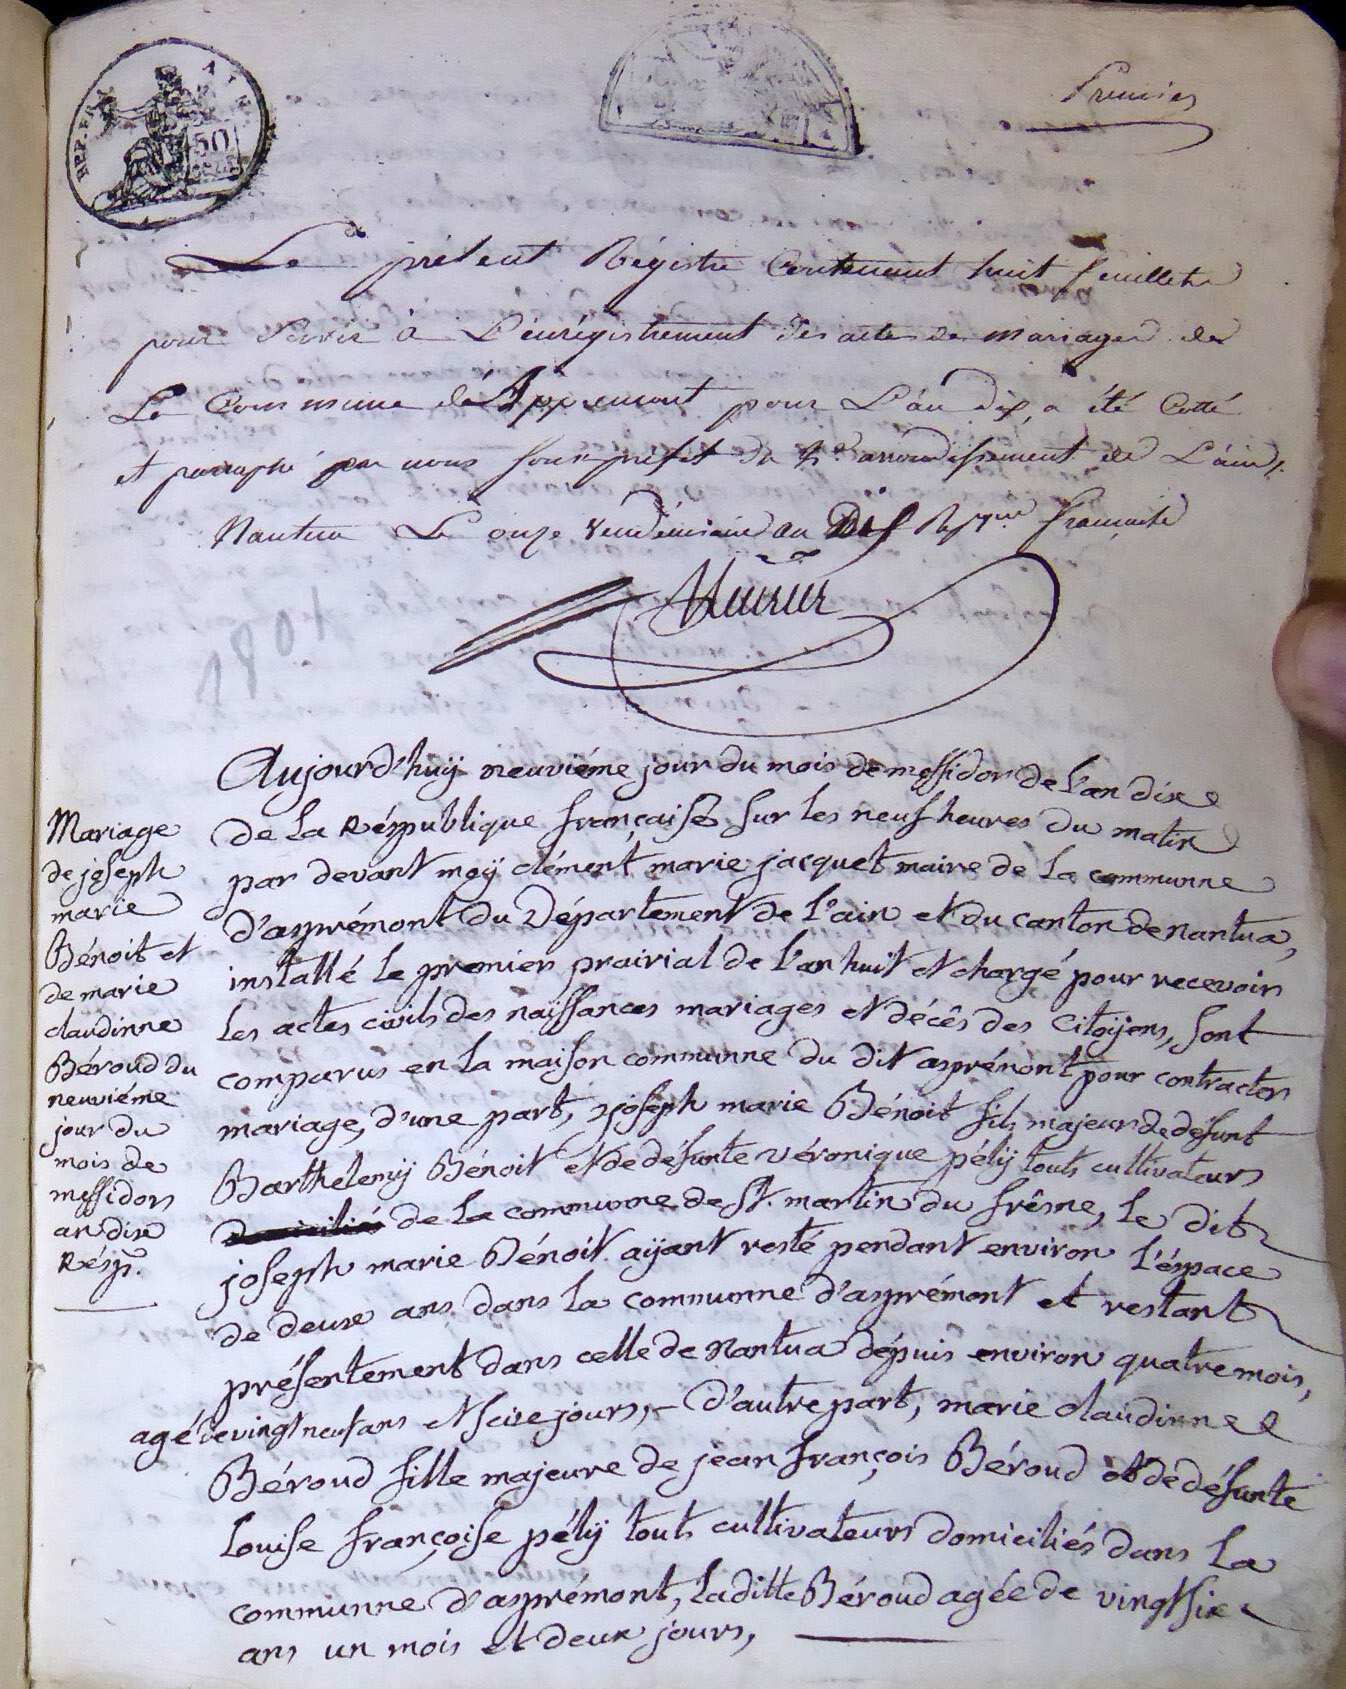 REP. FRA.
AIN.
50
CEN.
Premier
Le présent Régistre Contenant huit feuillets
pour Servir à L'enrégistrement des actes de mariages de
La Commune de Appremont pour L'an dix, a été Cotté
et paraphé par nous Sous préfet du 4e. arrondissement de L'ain /.
Nantua Le onze Vendémiaire an Dix Rpque. francaise
1801
Mariage
de joseph
marie
Bénoit et
de marie
claudinne
Béroud du
neuviéme
jour du
mois de
messidor
an dixe
Résp.
Aujourd'huÿ neuviéme jour du mois de messidor de l'an dixe
de la Réspublique françaisé sur les neuf heures du matin
par devant moÿ clément marie jacquet maire de la communne
d'asprémont du Département de l'ain et du canton de nantua,
installé le premier prairial de l'an huit et chargé pour recevoir
les actes civils des naissances mariages et décês des Citoÿens, sont
comparus en la maison communne du dit asprémont pour contracter
mariage, d'une part, joseph marie Bénoit fils majeur de défunt
Barthélemÿ Bénoit et de défunte véronique pélÿ touts cultivateurs
de la communne de St. martin du frêsne, le dit
joseph marie Bénoit aÿant resté pendant environ l'éspace
de deuxe ans dans la communne d'asprémont et restant
présentement dans celle de nantua dépuis environ quatre mois,
agé de vingt neuf ans et seize jours, – d'autre part, marie claudinne
Béroud fille majeure de jean françois Béroud et de défunte
louise françoise pélÿ touts cultivateurs domiciliés dans la
communne d'asprémont, laditte Béroud agée de vingt six
ans un mois et deux jours,